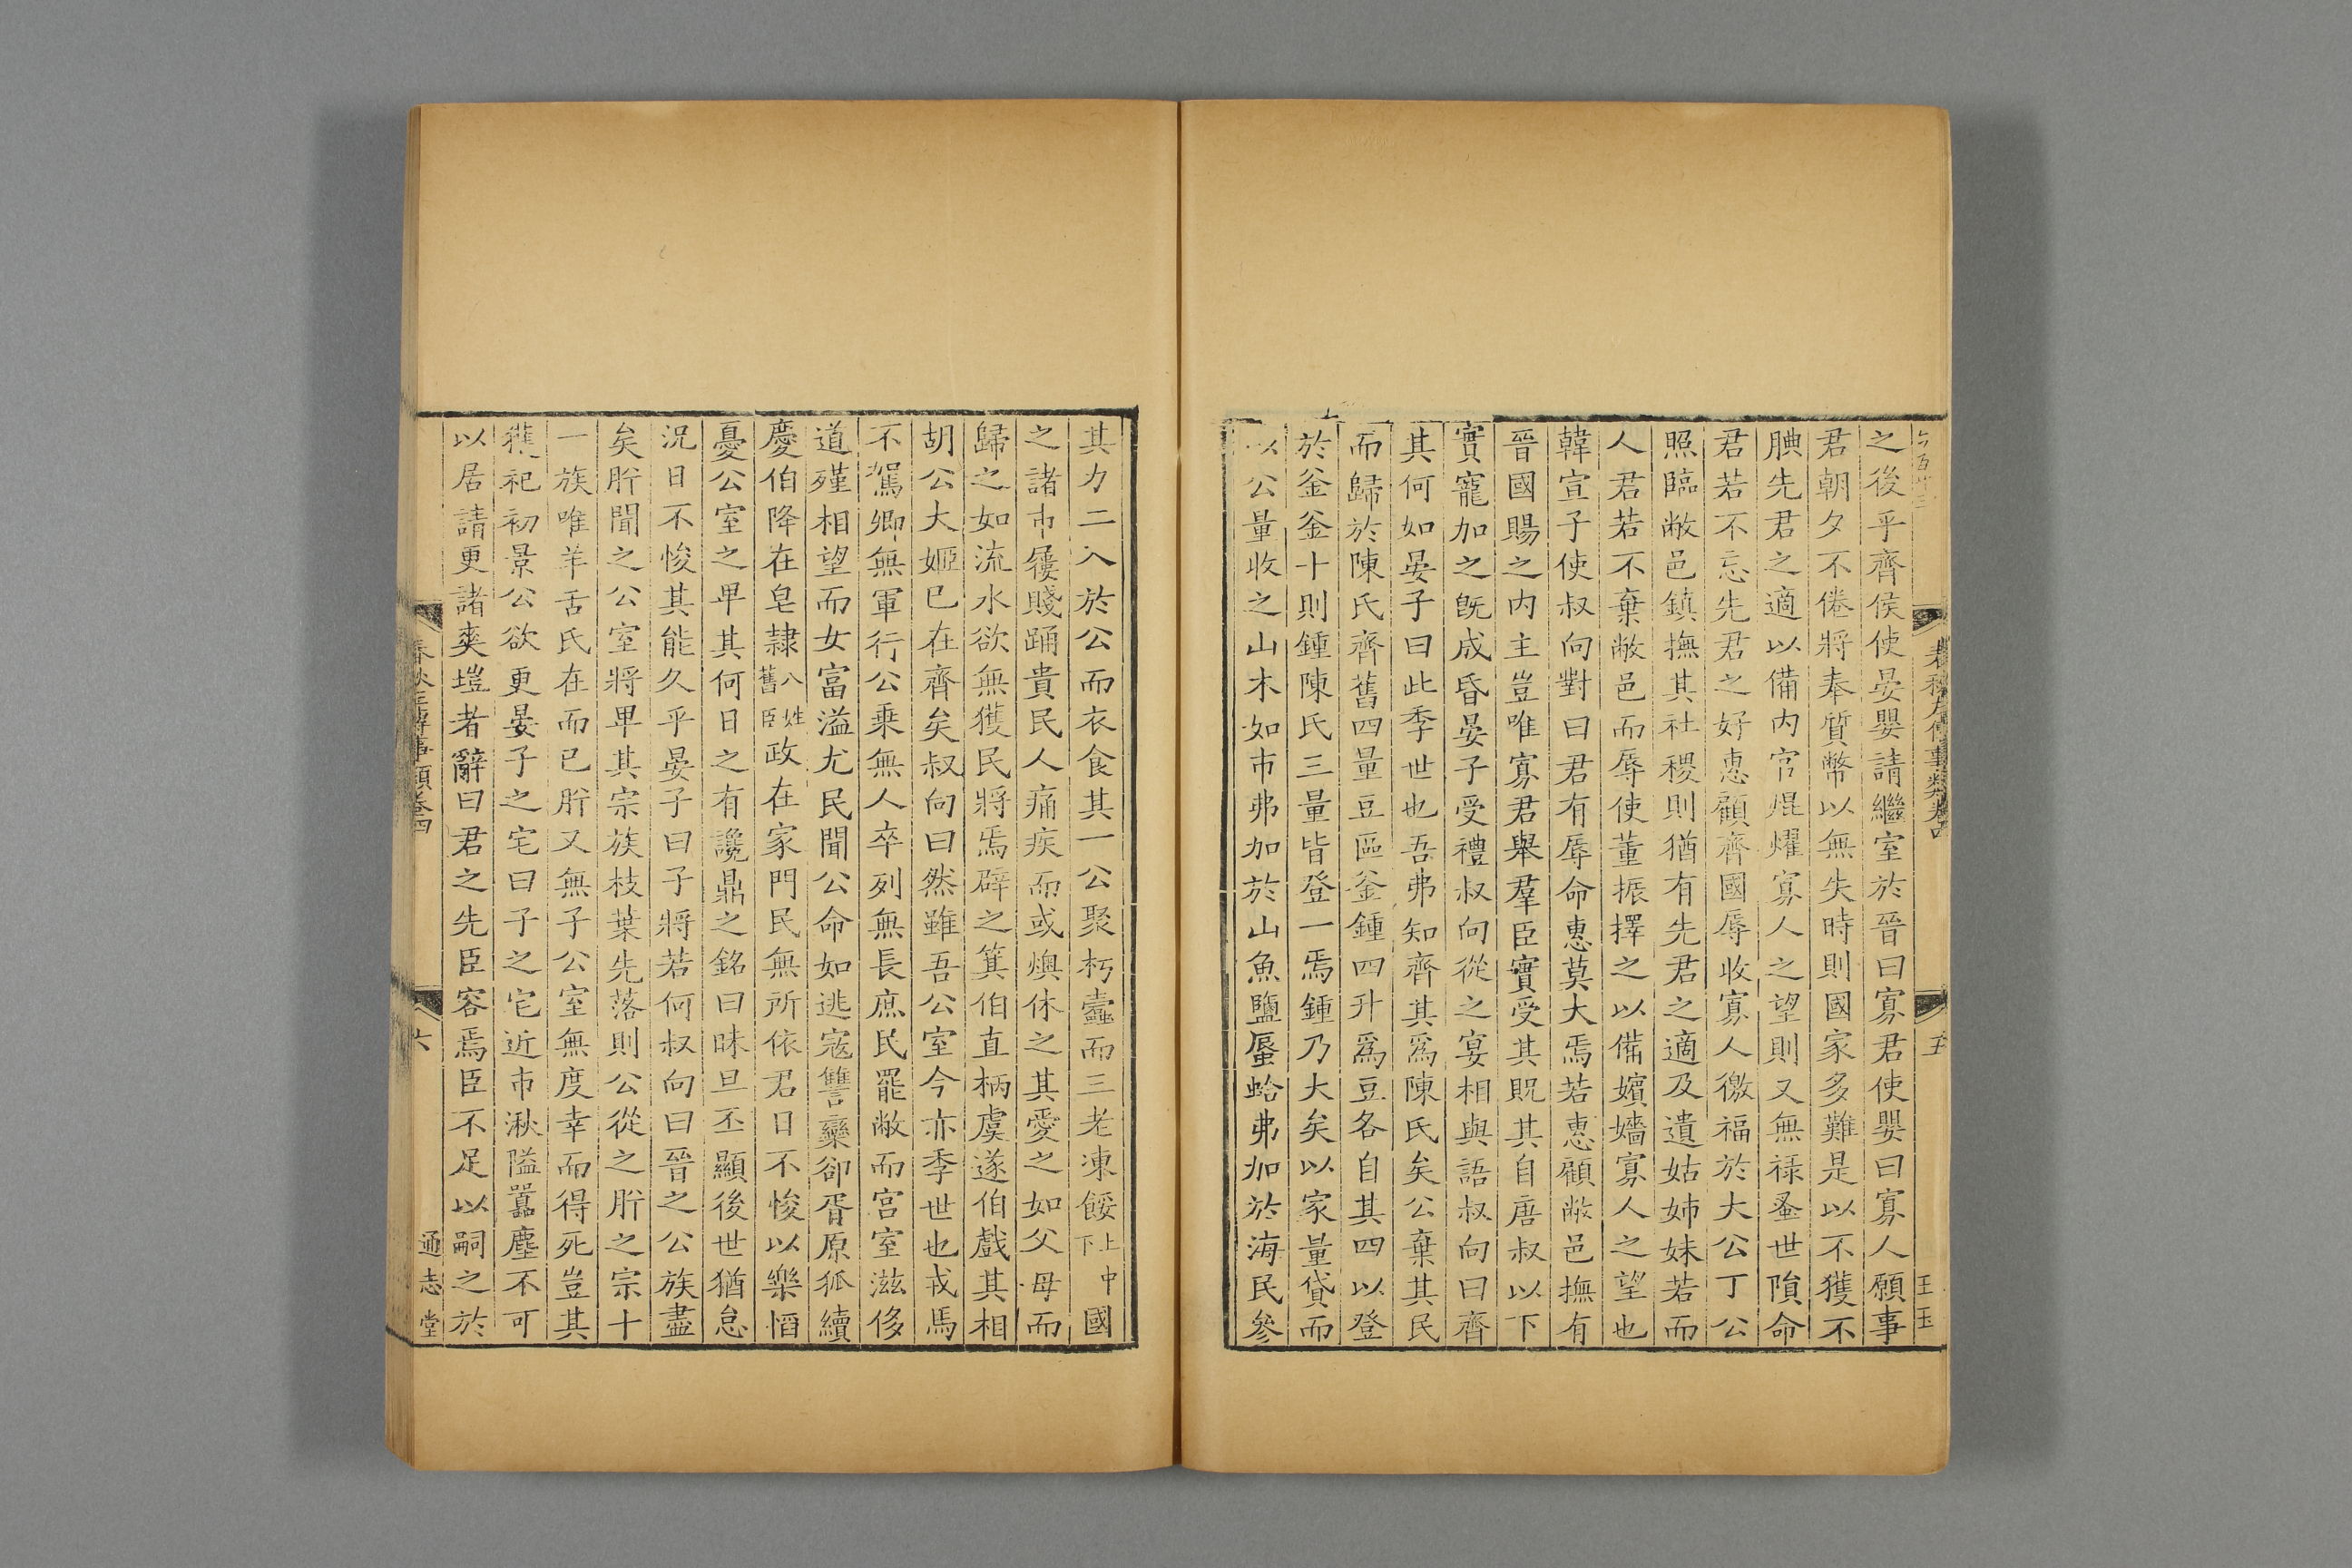 之後乎齊侯使晏嬰請繼室於晉曰寡君使嬰曰寡人願事
君朝夕不倦將奉質幣以無失時則國家多難是以不獲不
腆先君之適以備内官焜燿寡人之望則又無祿蚤世隕命
君若不忘先君之好惠顧齊國辱收寡人徼福於大公丁公
照臨敝邑鎮撫其社稷則猶有先君之適及遺姑姊妹若而
人君若不棄敝邑而辱使董振擇之以備嬪嬙寡人之望也
韓宣子使叔向對曰君有辱命惠莫大焉若惠顧敝邑撫有
晉國賜之内主豈唯寡君舉羣臣實受其貺其自唐叔以下
實寵加之旣成昏晏子受禮叔向從之宴相與語叔向曰齊
其何如晏子曰此季世也吾弗知齊其爲陳氏矣公棄其民
而歸於陳氏齊舊四量豆區釜鍾四升爲豆各自其四以登
於釜釜十則鍾陳氏三量皆登一焉鍾乃大矣以家量貸而
以公量收之山木如市弗加於山魚鹽蜃蛤弗加於海民參
其力二入於公而衣食其一公聚朽蠹而三老凍餒上中下國
之諸市屨賤踊貴民人痛疾而或燠休之其愛之如父母而
歸之如流水欲無獲民將焉辟之箕伯直柄虞遂伯戲其相
胡公大姬已在齊矣叔向曰然雖吾公室今亦季世也戎馬
不駕卿無軍行公乘無人卒列無長庶民罷敝而宫室滋侈
道殣相望而女富溢尤民聞公命如逃寇讐欒郤胥原狐續
慶伯降在皂隷八姓舊臣政在家門民無所依君日不悛以樂慆
憂公室之卑其何日之有讒鼎之銘曰昧旦丕顯後世猶怠
況日不悛其能久乎晏子曰子將若何叔向曰晉之公族盡
矣肸聞之公室將卑其宗族枝葉先落則公從之肸之宗十
一族唯羊舌氏在而已肸又無子公室無度幸而得死豈其
獲祀初景公欲更晏子之宅曰子之宅近市湫隘囂塵不可
以居請更諸爽塏者辭曰君之先臣容焉臣不足以嗣之於
春秋左傳事類卷四
六
通志堂